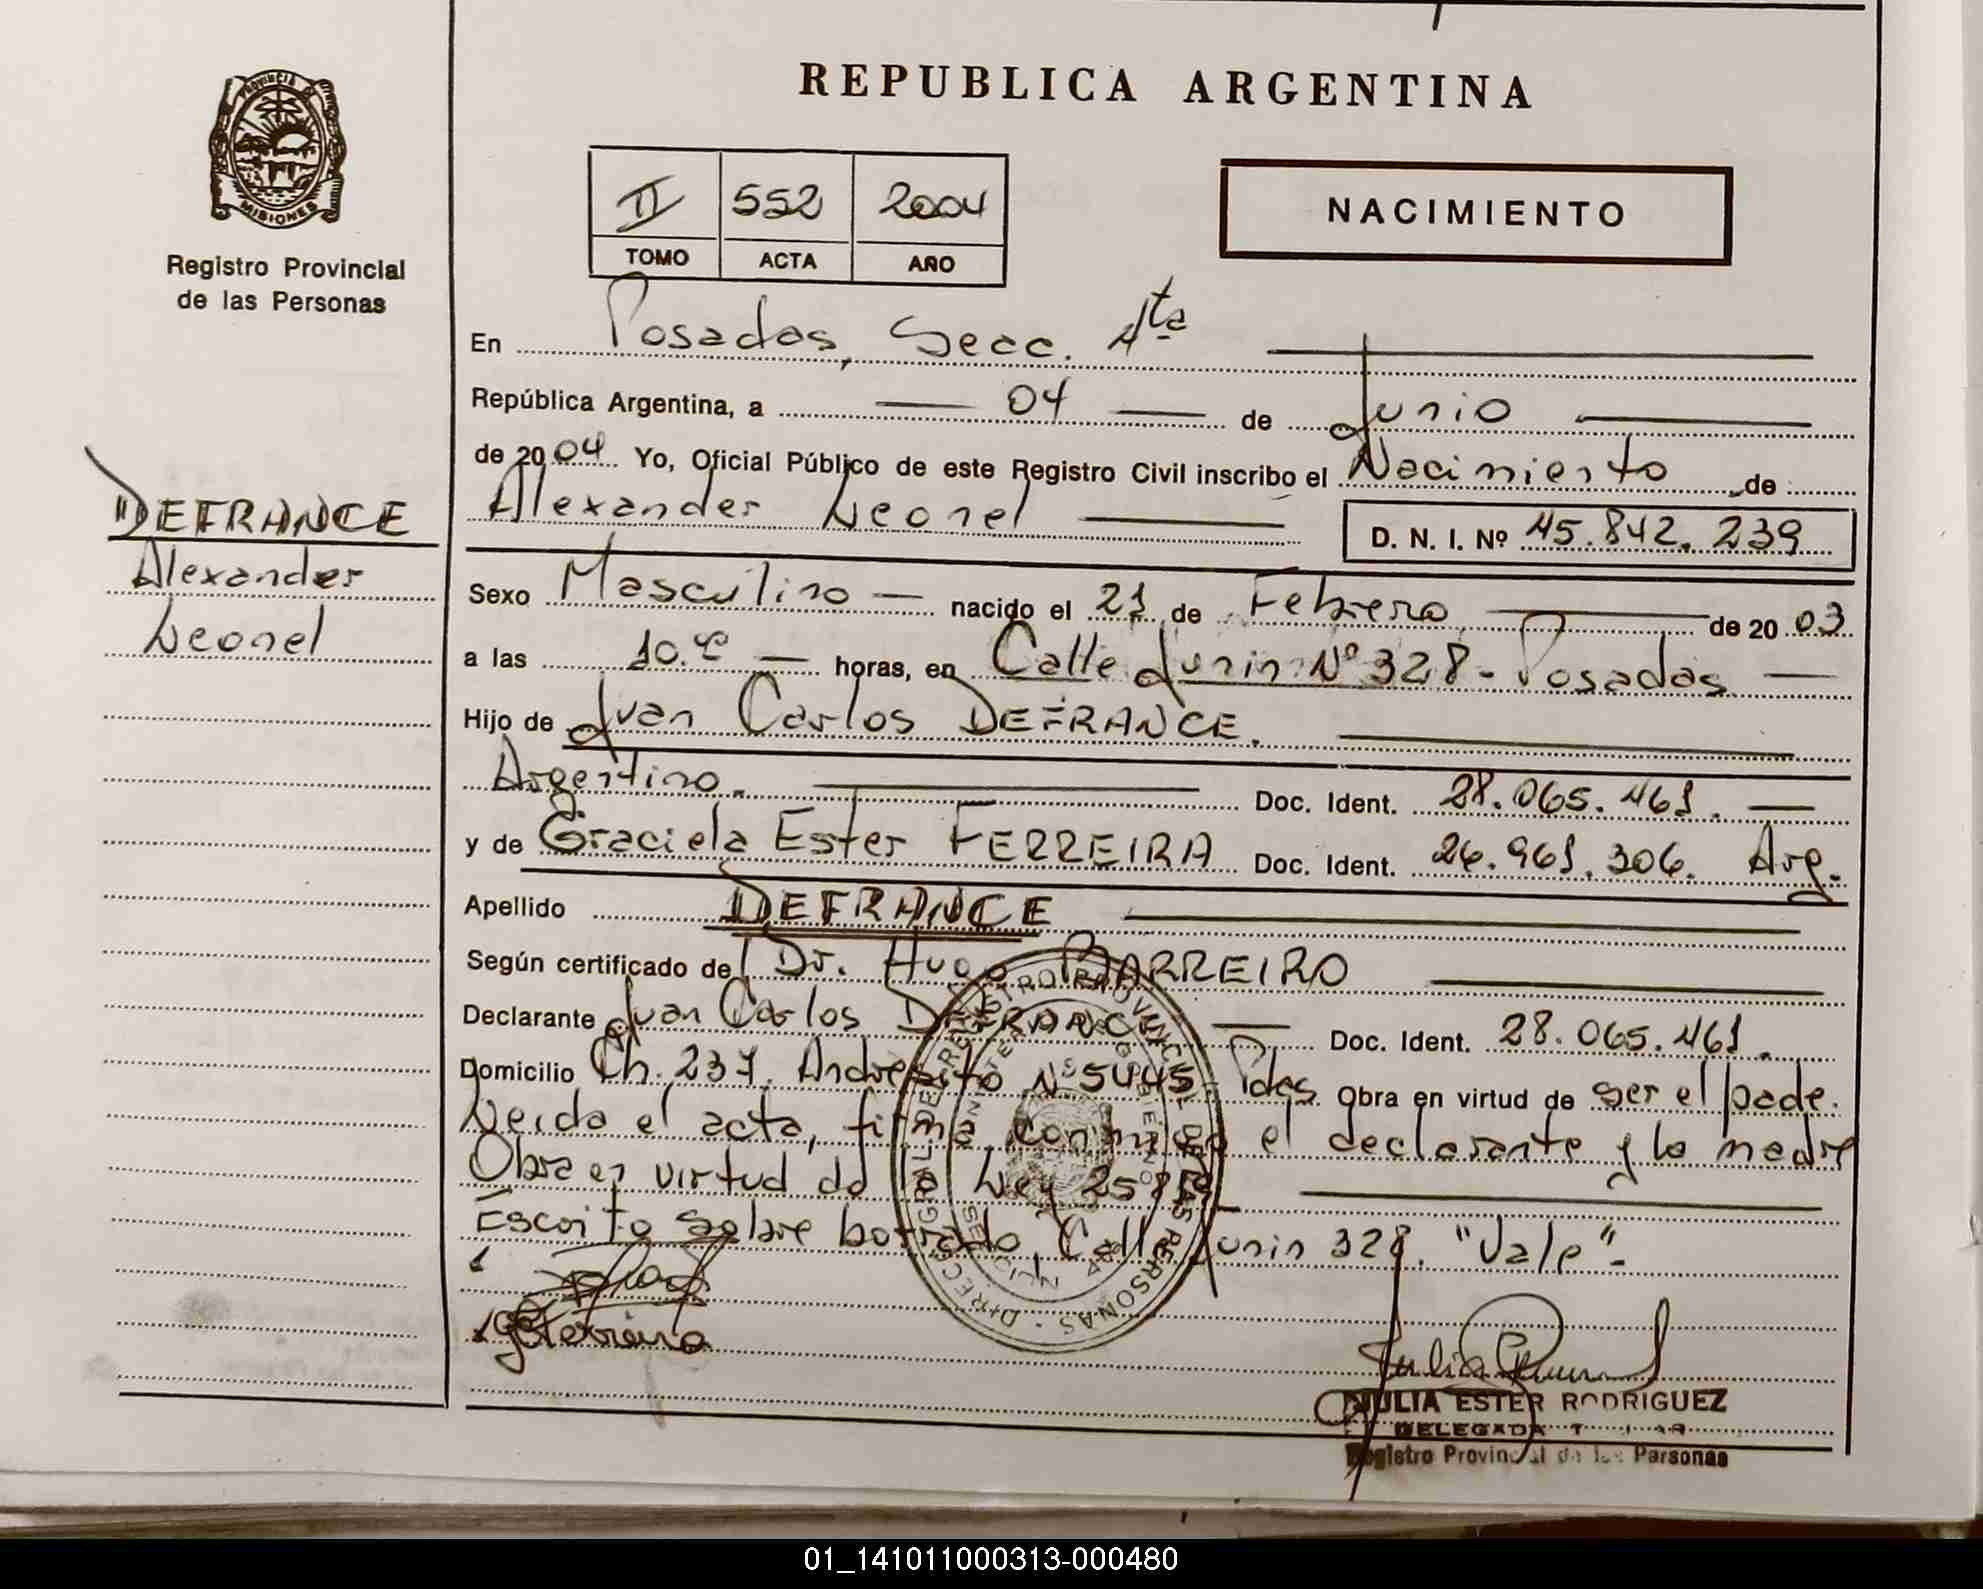 REPUBLICA ARGENTINA
PROVINCIA DE
MISIONES
Registro Provincial
de las Personas
II 552 2004
TOMO ACTA AÑO
NACIMIENTO
En Posadas, Secc. 4ta
República Argentina, a 04 de Junio
de 2004 Yo, Oficial Público de este Registro Civil inscribo el Nacimiento de
Alexander Leonel
D. N. I. Nº 45.842.239
DEFRANCE
Alexander
Leonel
Sexo Masculino nacido el 21 de Febrero de 2003
a las 10.00 horas, en Calle Junin Nº 328 - Posadas
Hijo de Juan Carlos DEFRANCE.
Argentino. Doc. Ident. 28.065.461.
y de Graciela Ester FERREIRA Doc. Ident. 26.961.306. Arg.
Apellido DEFRANCE
Según certificado de Dr. Hugo BARREIRO
Declarante Juan Carlos DEFRANCE Doc. Ident. 28.065.461.
Domicilio Ch. 237. Andresito Nº 5445 - Pdas. Obra en virtud de ser el pade.
Leida el acta, firma conmigo el declarante y la madre
Obra en virtud de la Ley
Escrito sobre borrado, Calle Junin 328. "Vale"-
DIRECC GRAL DE REGISTRO PROVINCIAL DE LAS PERSONAS
Julia
JULIA ESTER RODRIGUEZ
DELEGADA
Registro Provincial de las Personas
01_141011000313-000480